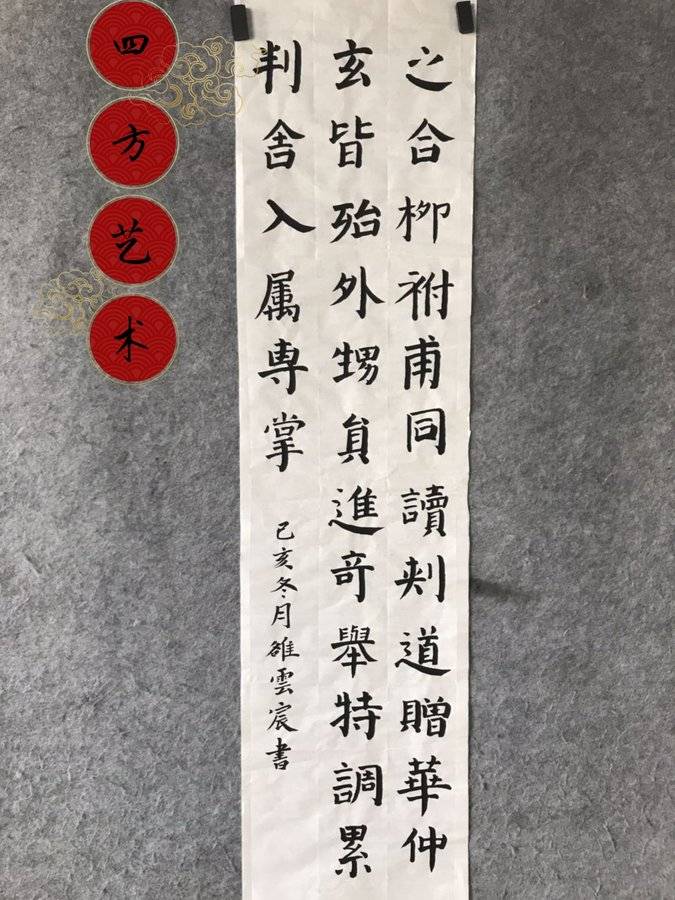 四方艺术
之合柳祔甫同讀刾道贈華仲
玄皆殆外甥貟進奇舉特調累
判舍入属専掌
己亥冬月雒雲宸書